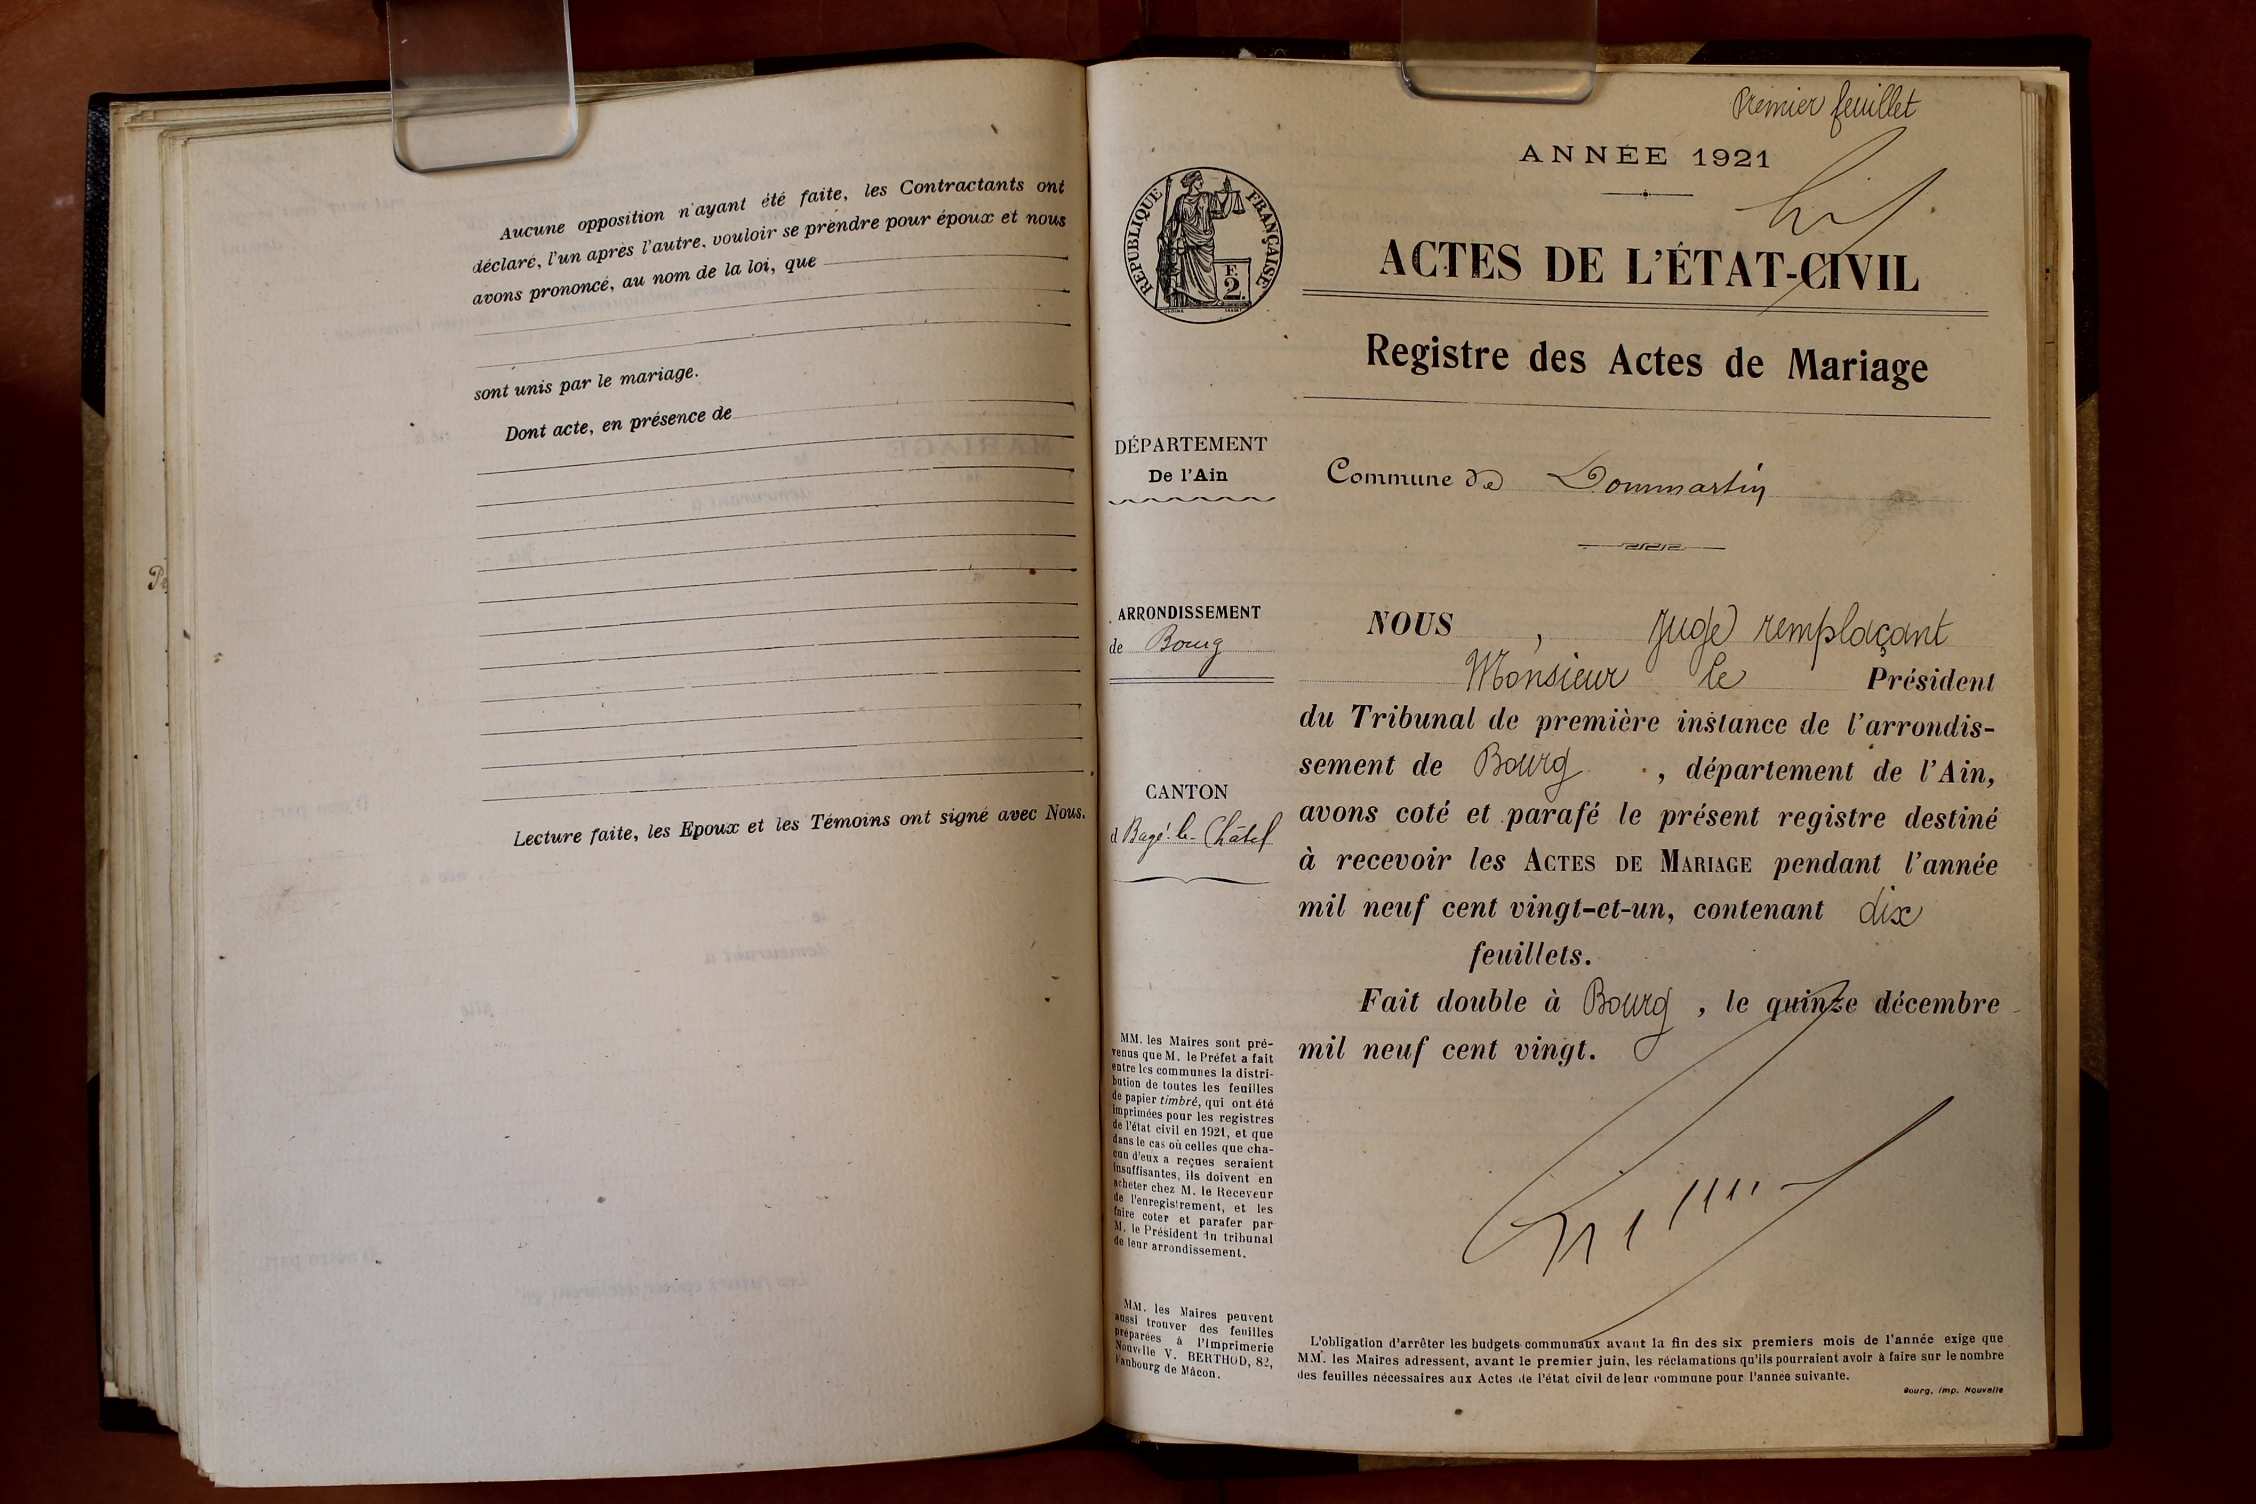 Aucune opposition n'ayant été faite, les Contractants ont
déclaré, l'un après l'autre, vouloir se prendre pour époux et nous
avons prononcé, au nom de la loi, que
sont unis par le mariage.
Dont acte, en présence de
Lecture faite, les Epoux et les Témoins ont signé avec Nous.
Premier feuillet
ANNÉE 1921
RÉPUBLIQUE FRANÇAISE
F.
2.
ACTES DE L'ÉTAT-CIVIL
Registre des Actes de Mariage
DÉPARTEMENT
De l'Ain
Commune de Dommartin
ARRONDISSEMENT
de Bourg
CANTON
d Bagé-le-Châtel
MM. les Maires sont pré-
venus que M. le Préfet a fait
entre les communes la distri-
bution de toutes les feuilles
de papier timbré, qui ont été
imprimées pour les registres
de l'état civil en 1921, et que
dans le cas où celles que cha-
cun d'eux a reçues seraient
insuffisantes, ils doivent en
acheter chez M. le Receveur
de l'enregistrement, et les
faire coter et parafer par
M. le Président du tribunal
de leur arrondissement.
MM. les Maires peuvent
aussi trouver des feuilles
préparées à l'Imprimerie
Nouvelle V. BERTHOD, 82,
Faubourg de Mâcon.
NOUS , Juge remplaçant
Monsieur le Président
du Tribunal de première instance de l'arrondis-
sement de Bourg , département de l'Ain,
avons coté et parafé le présent registre destiné
à recevoir les ACTES DE MARIAGE pendant l'année
mil neuf cent vingt-et-un, contenant dix
feuillets.
Fait double à Bourg , le quinze décembre
mil neuf cent vingt.
L'obligation d'arrêter les budgets communaux avant la fin des six premiers mois de l'année exige que
MM. les Maires adressent, avant le premier juin, les réclamations qu'ils pourraient avoir à faire sur le nombre
des feuilles nécessaires aux Actes de l'état civil de leur commune pour l'année suivante.
Bourg, Imp. Nouvelle